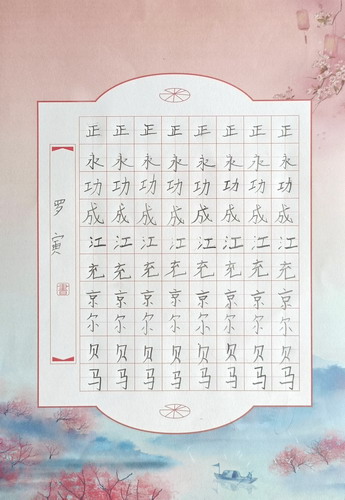 正 正 正 正 正 正 正 正
永 永 永 永 永 永 永 永
功 功 功 功 功 功 功 功
成 成 成 成 成 成 成 成
江 江 江 江 江 江 江 江
充 充 充 充 充 充 充 充
京 京 京 京 京 京 京 京
尔 尔 尔 尔 尔 尔 尔 尔
贝 贝 贝 贝 贝 贝 贝 贝
马 马 马 马 马 马 马 马
罗寅
書